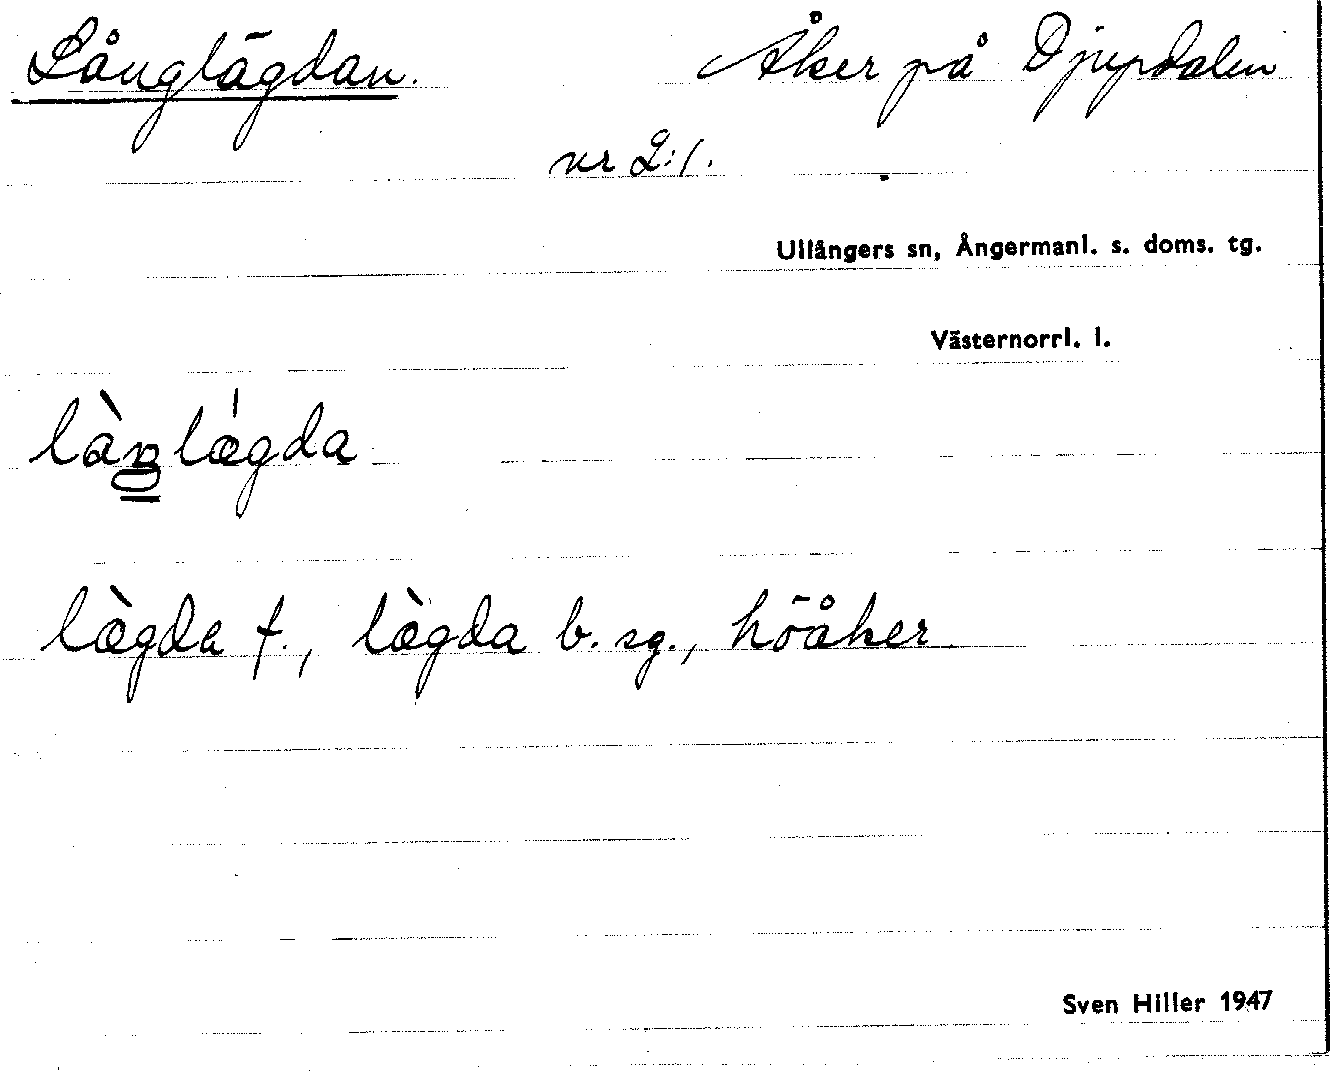 Långlägdan. Åker på Djupdalen
nr 2:1.
Ullångers sn, Ångermanl. s. doms. tg.
Västernorrl. l.
làŋlǽgda
læ̀gde f., læ̀gda b. sg., höåker
Sven Hiller 1947